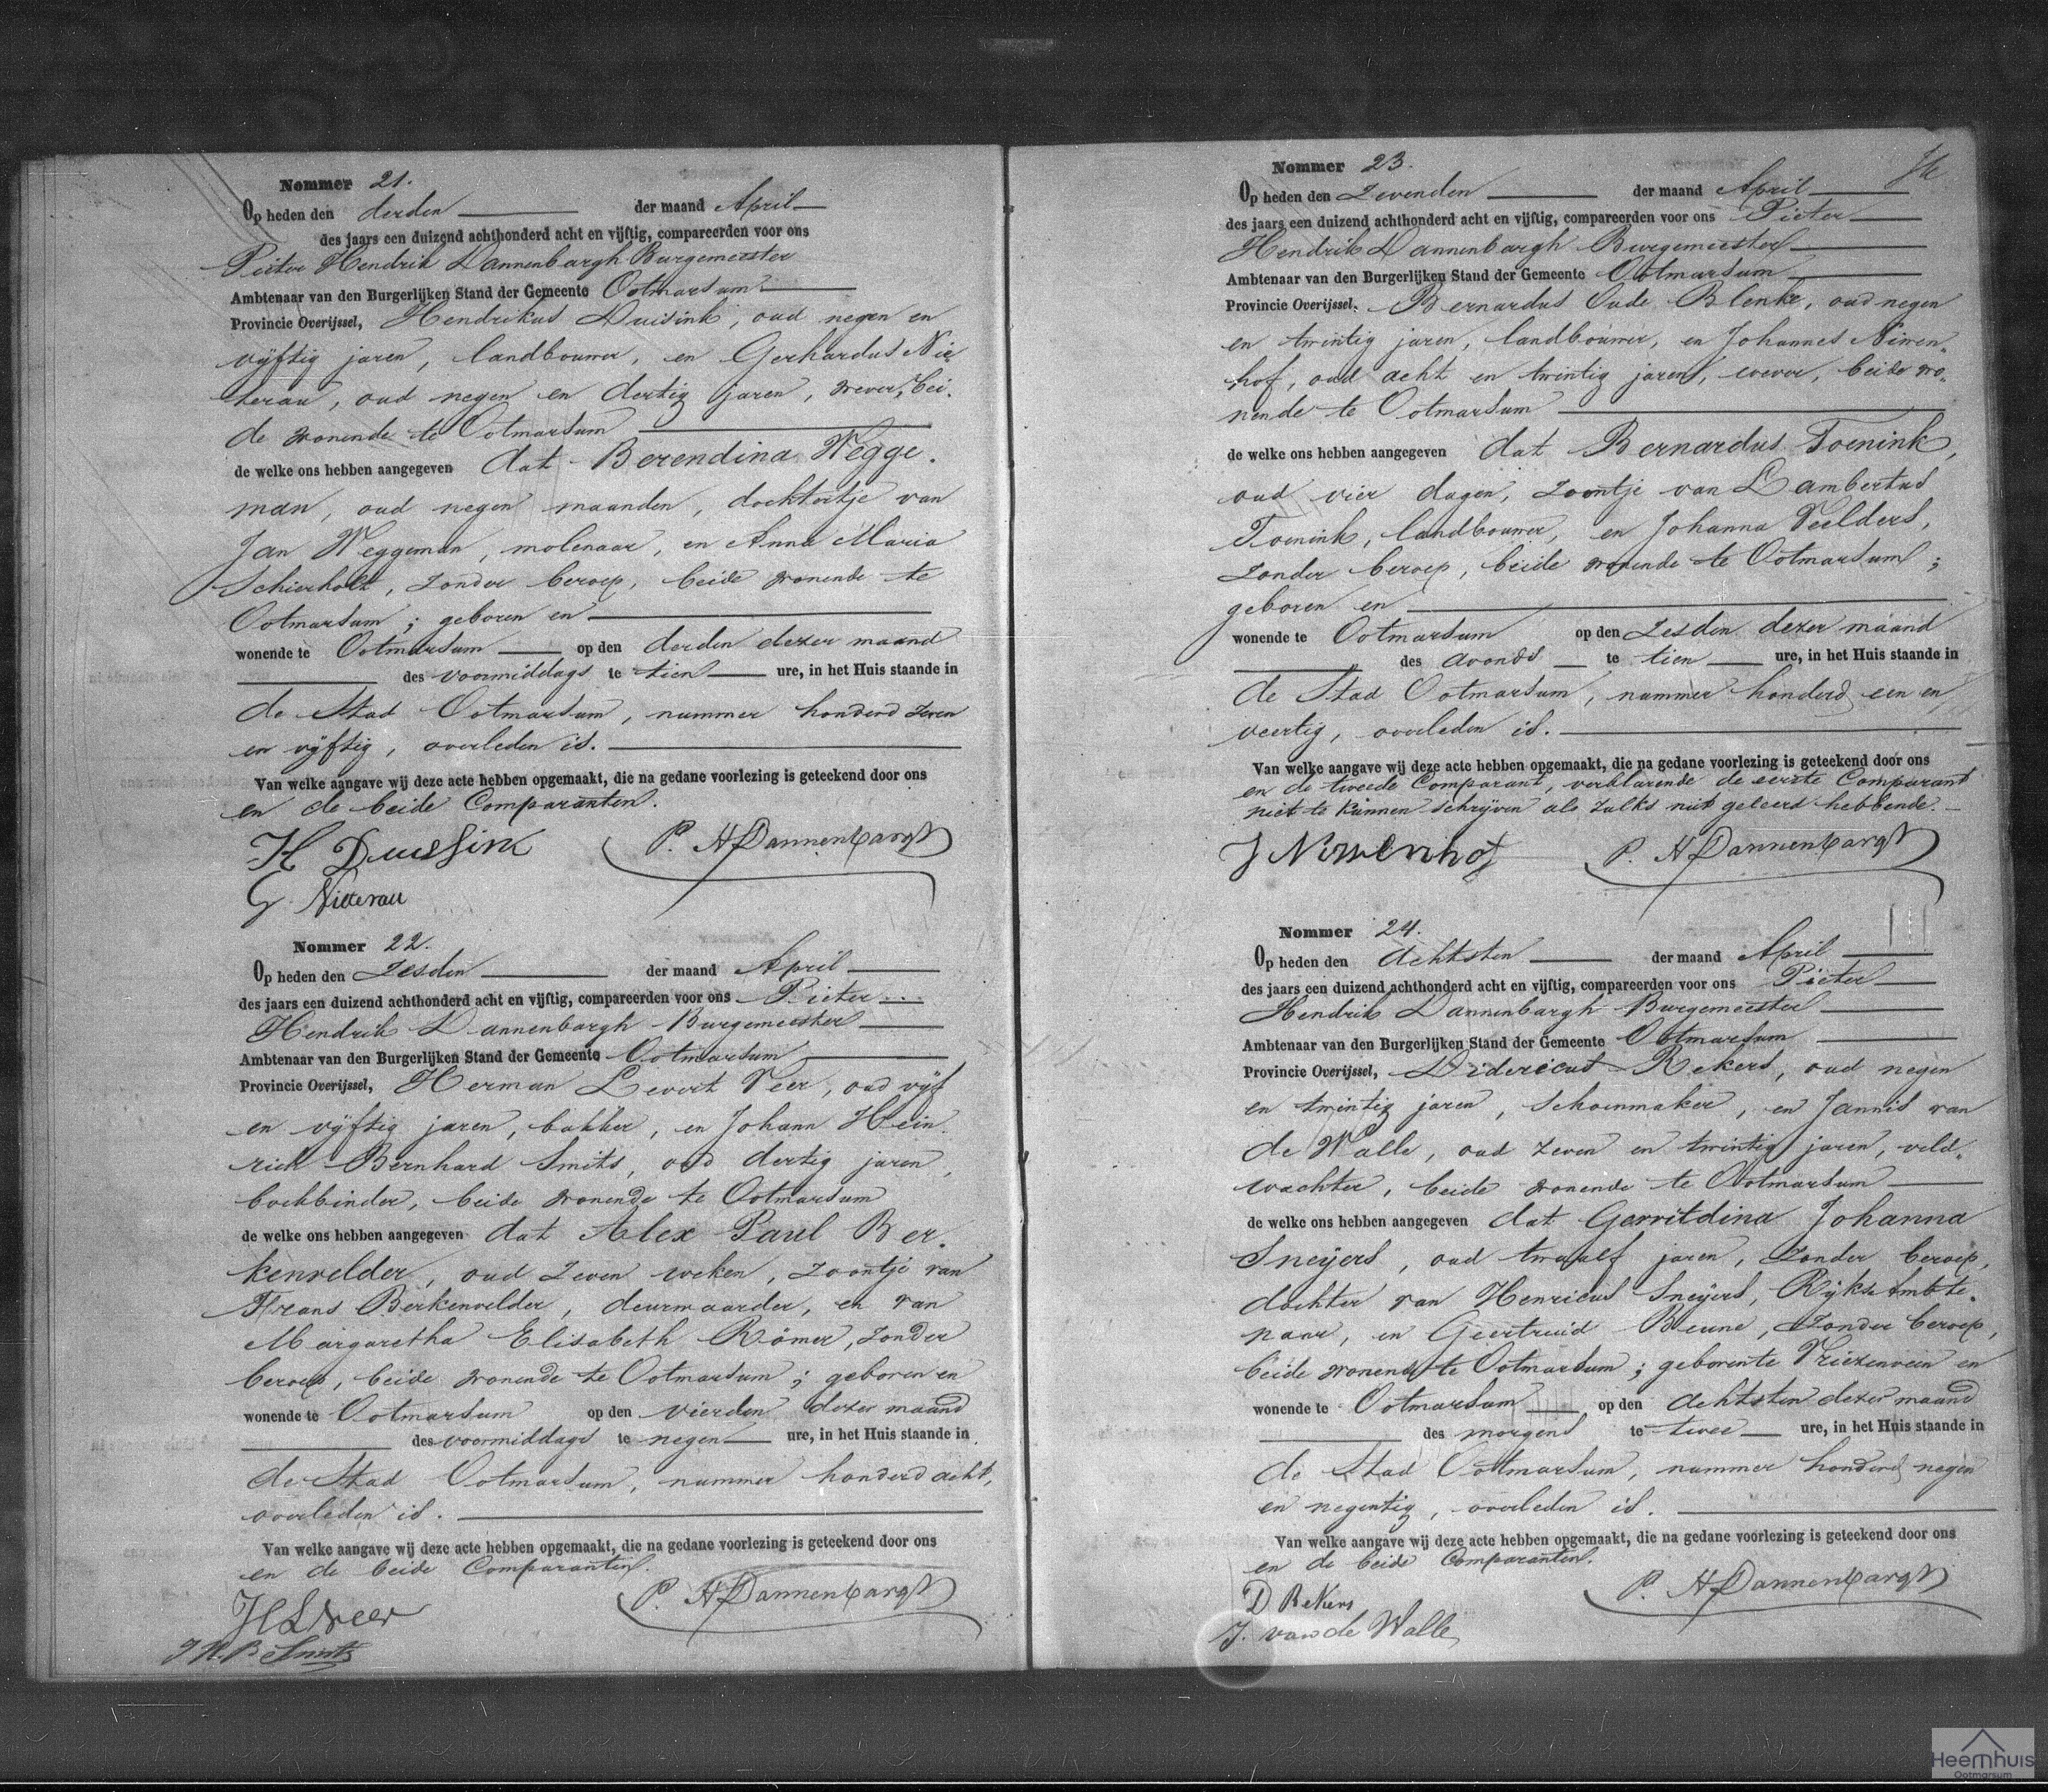 Nommer 21.
Op heden den derden der maand April
des jaars een duizend achthonderd acht en vijftig, compareerden voor ons
Pieter Hendrik Dannenbargh Burgemeester
Ambtenaar van den Burgerlijken Stand der Gemeente Ootmarsum
Provincie Overijssel, Hendrikus Duisink, oud negen en
vijftig jaren, landbouwer, en Gerhardus Nie
terau, oud negen en dertig jaren, wever, bei-
de wonende te Ootmarsum
de welke ons hebben aangegeven dat Berendina Wegge-
man, oud negen maanden, dochtertje van
Jan Weggeman, molenaar, en Anna Maria
Schierholt, zonder beroep, beide wonende te
Ootmarsum; geboren en
wonende te Ootmarsum op den derden dezer maand
des voormiddags te tien ure, in het Huis staande in
de Stad Ootmarsum, nummer honderd zeven
en vijftig, overleden is.
Van welke aangave wij deze acte hebben opgemaakt, die na gedane voorlezing is geteekend door ons
en de beide Comparanten.
H Duessink P. H Dannenbargh
G Nieterau
Nommer 22.
Op heden den zesden der maand April
des jaars een duizend achthonderd acht en vijftig, compareerden voor ons Pieter
Hendrik Dannenbargh Burgemeester
Ambtenaar van den Burgerlijken Stand der Gemeente Ootmarsum
Provincie Overijssel, Herman Levert Veer, oud vijf
en vijftig jaren, bakker, en Johann Hein-
rich Bernhard Smits, oud dertig jaren,
boekbinder, beide wonende te Ootmarsum
de welke ons hebben aangegeven dat Alex Paul Ber-
kenvelder, oud zeven weken, zoontje van
Frans Berkenvelder, deurwaarder, en van
Margaretha Elisabeth Römer, zonder
beroep, beide wonende te Ootmarsum; geboren en
wonende te Ootmarsum op den vierden dezer maand
des voormiddags te negen ure, in het Huis staande in
de Stad Ootmarsum, nummer honderd acht,
overleden is.
Van welke aangave wij deze acte hebben opgemaakt, die na gedane voorlezing is geteekend door ons
en de beide Comparanten.
H L Veer P. H Dannenbargh
J H. B Smits
Nommer 23.
Op heden den zevenden der maand April
des jaars een duizend achthonderd acht en vijftig, compareerden voor ons Pieter
Hendrik Dannenbargh Burgemeester
Ambtenaar van den Burgerlijken Stand der Gemeente Ootmarsum
Provincie Overijssel, Bernardus Oude Blenke, oud negen
en twintig jaren, landbouwer, en Johannes Niwen-
hof, oud acht en twintig jaren, wever, beide wo-
nende te Ootmarsum
de welke ons hebben aangegeven dat Bernardus Toenink,
oud vier dagen, zoontje van Lambertus
Toenink, landbouwer, en Johanna Veelders,
zonder beroep, beide wonende te Ootmarsum;
geboren en
wonende te Ootmarsum op den zesden dezer maand
des avonds te tien ure, in het Huis staande in
de Stad Ootmarsum, nummer honderd een en
veertig, overleden is.
Van welke aangave wij deze acte hebben opgemaakt, die na gedane voorlezing is geteekend door ons
en de tweede Comparant, verklarende de eerste Comparant
niet te kunnen schrijven als zulks niet geleerd hebbende.
J Niwenhof P. H Dannenbargh
Nommer 24.
Op heden den achtsten der maand April
des jaars een duizend achthonderd acht en vijftig, compareerden voor ons Pieter
Hendrik Dannenbargh Burgemeester
Ambtenaar van den Burgerlijken Stand der Gemeente Ootmarsum
Provincie Overijssel, Didericus Rekers, oud negen
en twintig jaren, schoenmaker, en Jannis van
de Walle, oud zeven en twintig jaren, veld-
wachter, beide wonende te Ootmarsum
de welke ons hebben aangegeven dat Gerritdina Johanna
Sneijers, oud twaalf jaren, zonder beroep,
dochter van Henricus Sneijers, Rijks Ambte-
naar, en Geertruid Beune, zonder beroep,
beide wonende te Ootmarsum; geboren te Vriezenvein en
wonende te Ootmarsum op den achtsten dezer maand
des morgens te twee ure, in het Huis staande in
de Stad Ootmarsum, nummer honderd negen
en negentig, overleden is.
Van welke aangave wij deze acte hebben opgemaakt, die na gedane voorlezing is geteekend door ons
en de beide Comparanten.
D Rekers P. H Dannenbargh
J. van de Walle
Heemhuis
Ootmarsum